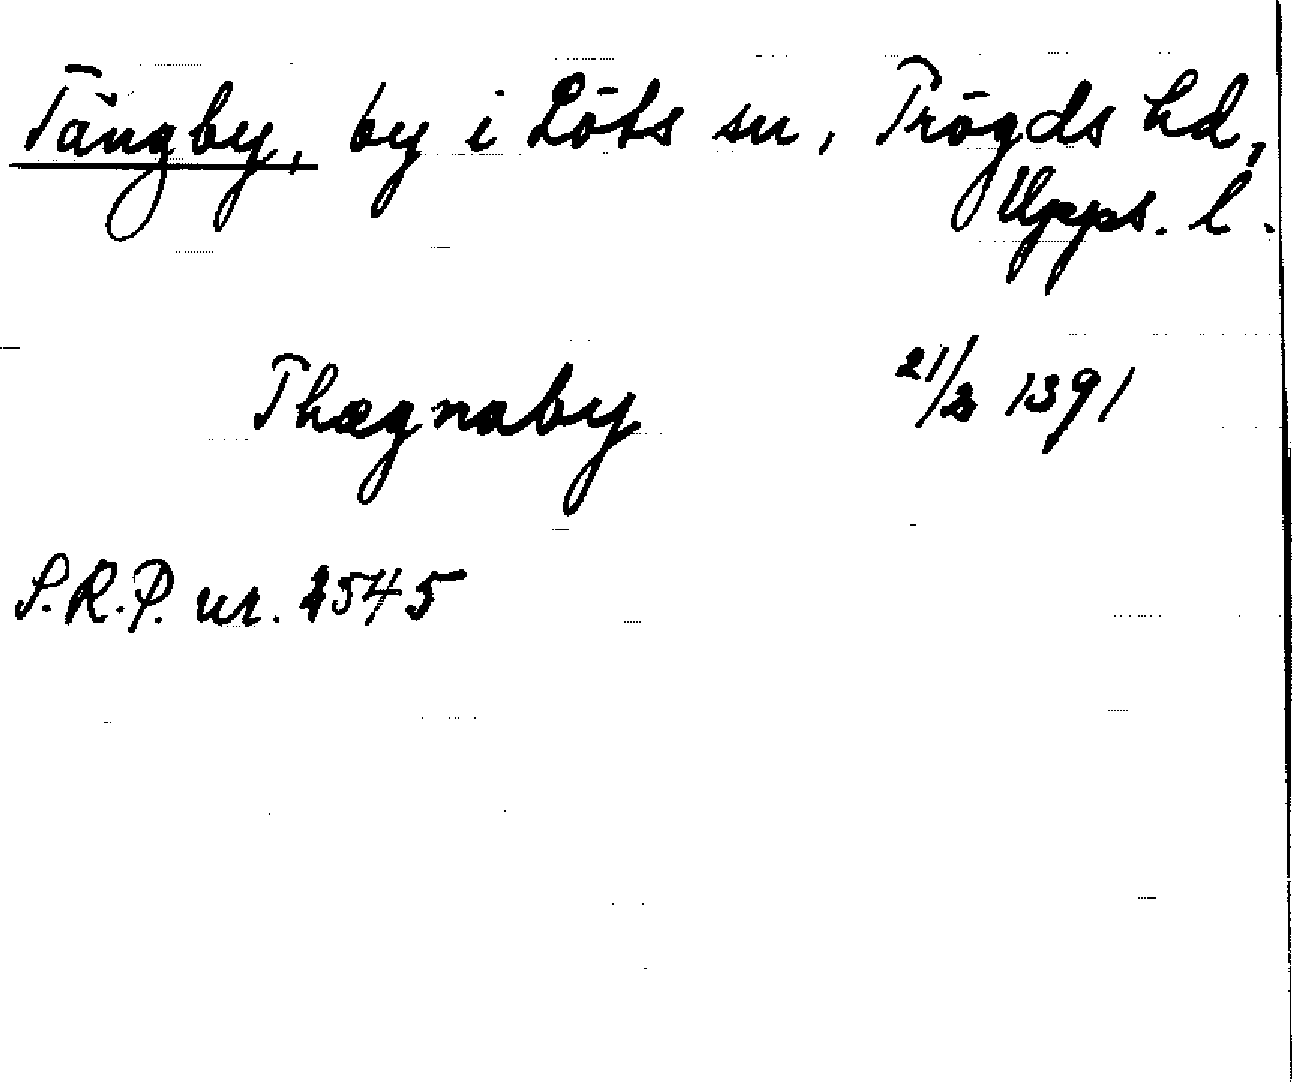 Tängby, by i Löts sn, Trögds hd,
Upps. l.
Thægnaby 21/2 1391
S.R.P. nr. 2545